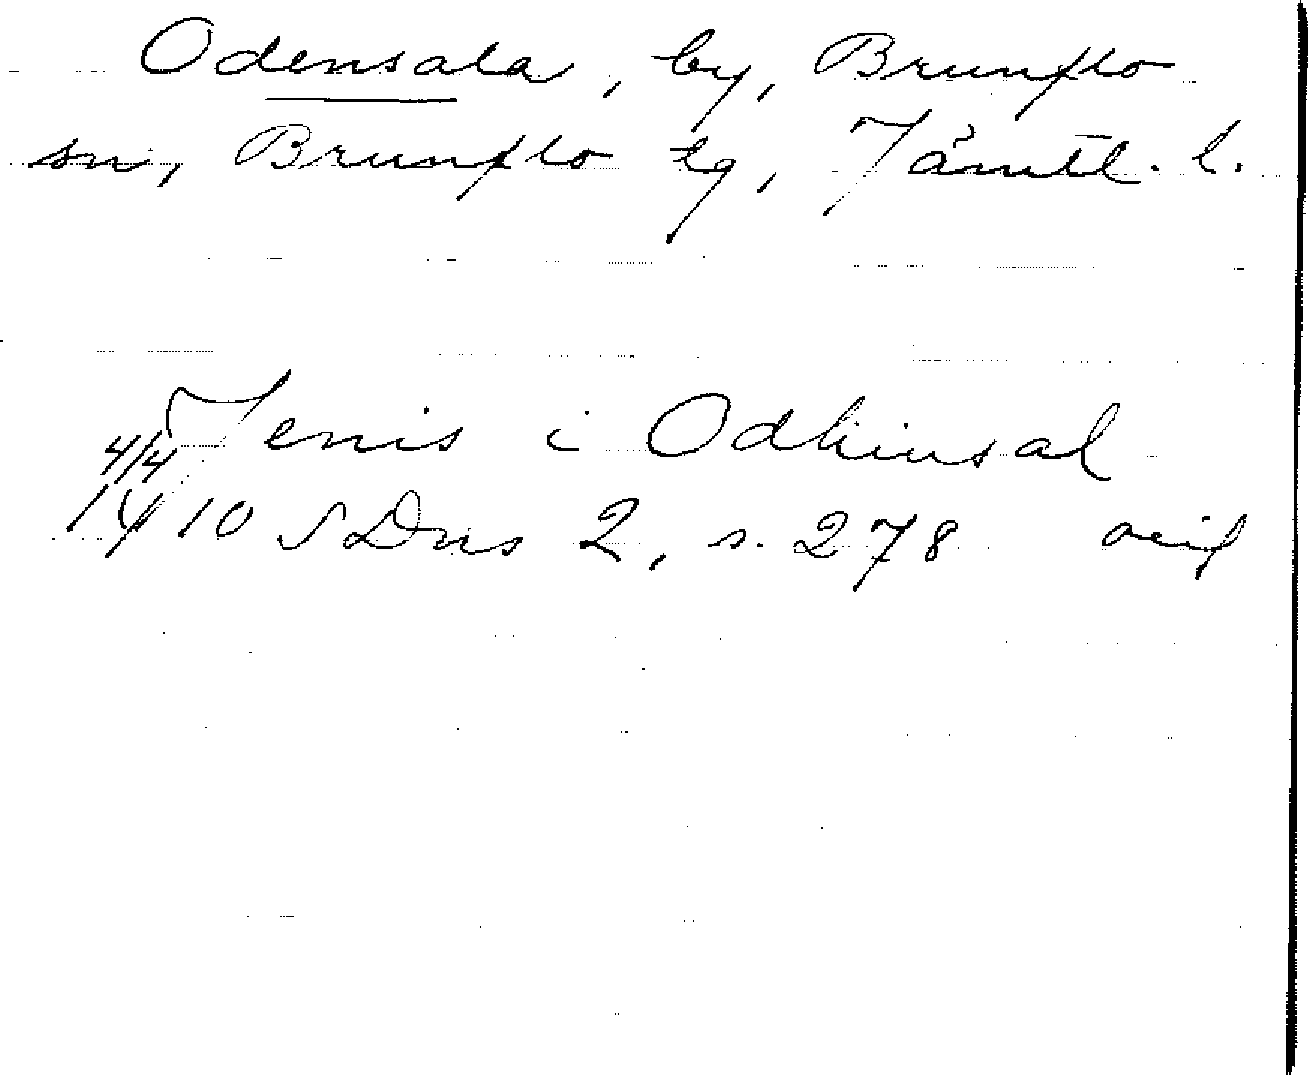 Odensala, by, Brunflo
sn, Brunflo tg, Jämtl. l.
Jenis i Odhinsal
4/4
1410 SDns 2, s. 278